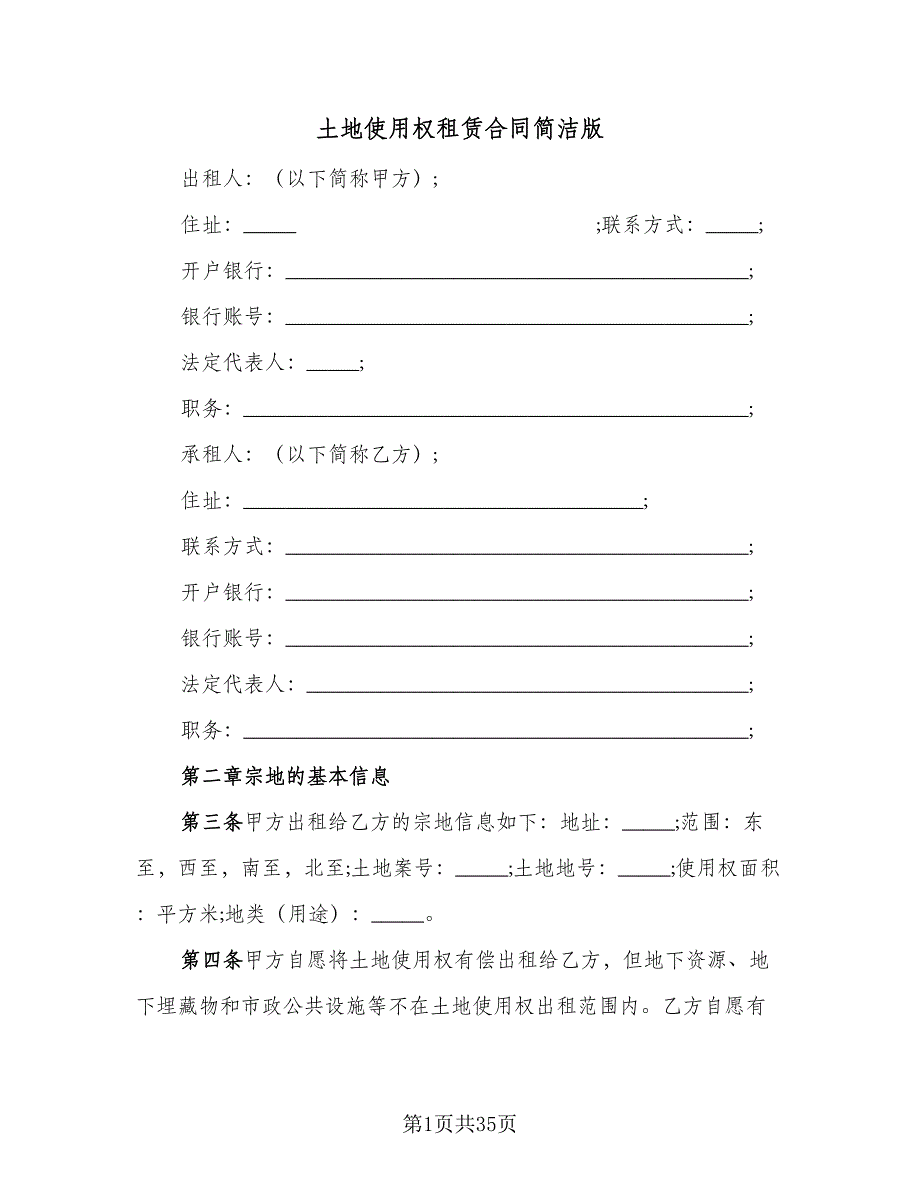 土地使用权租赁合同简洁版
出租人：（以下简称甲方）;
住址：_____ ;联系方式：_____;
开户银行：____________________________________________;
银行账号：____________________________________________;
法定代表人：_____;
职务：________________________________________________;
承租人：（以下简称乙方）;
住址：______________________________________;
联系方式：____________________________________________;
开户银行：____________________________________________;
银行账号：____________________________________________;
法定代表人：__________________________________________;
职务：________________________________________________;
第二章宗地的基本信息
第三条甲方出租给乙方的宗地信息如下：地址：_____;范围：东
至，西至，南至，北至;土地案号：_____;土地地号：_____;使用权面积
：平方米;地类（用途）：_____。
第四条甲方自愿将土地使用权有偿出租给乙方，但地下资源、地
下埋藏物和市政公共设施等不在土地使用权出租范围内。乙方自愿有
第1页共35页